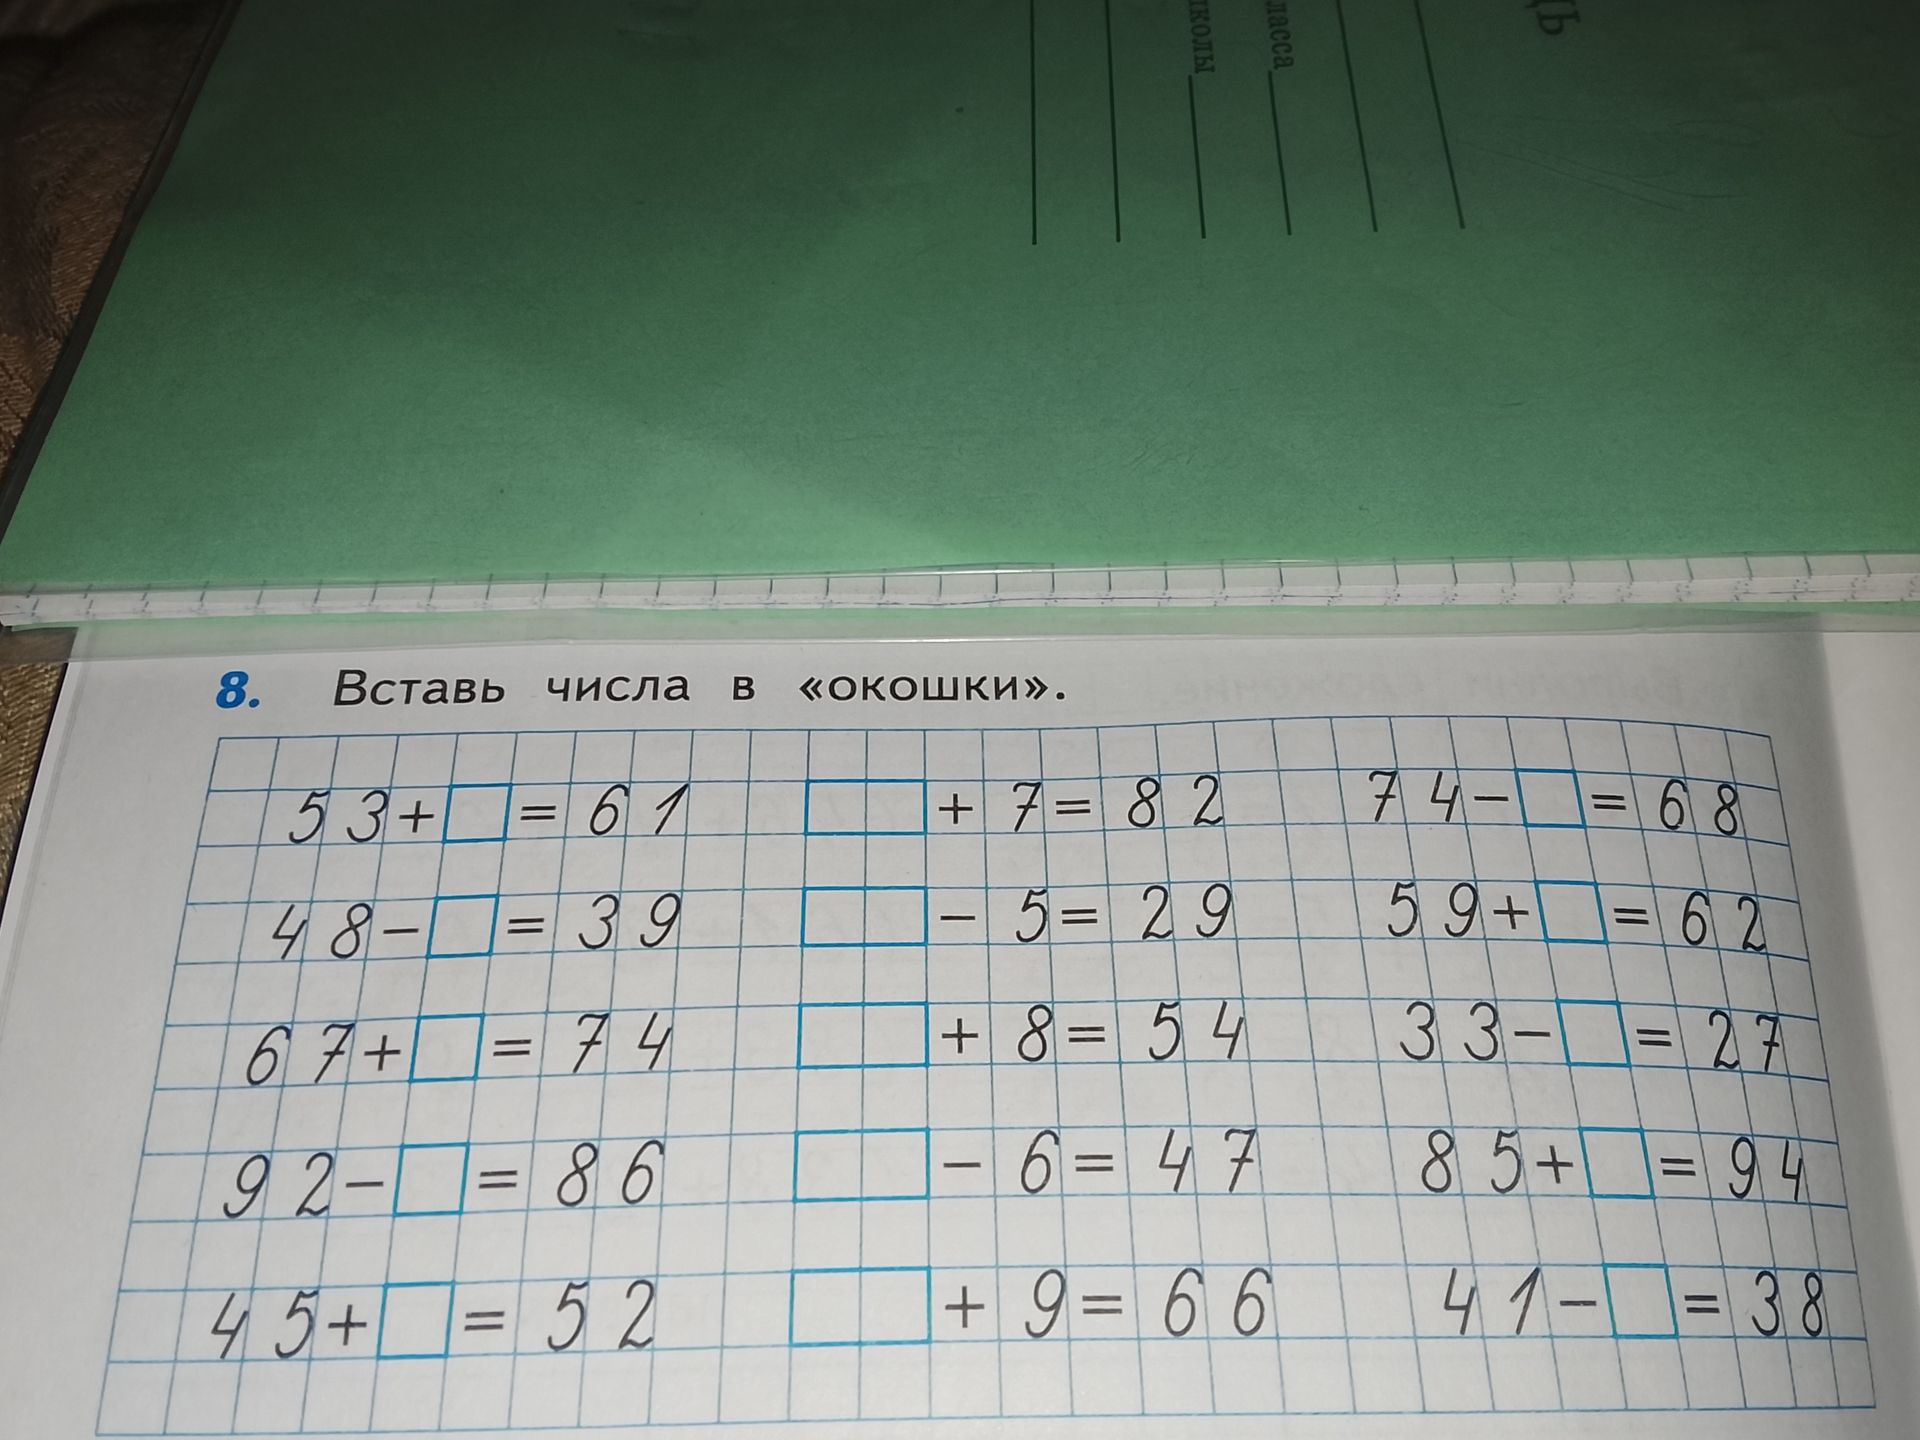 колы
ласса
8. Вставь числа в «окошки».
53+□=61 □□+7=82 74-□=68
48-□=39 □□-5=29 59+□=62
67+□=74 □□+8=54 33-□=27
92-□=86 □□-6=47 85+□=94
45+□=52 □□+9=66 41-□=38